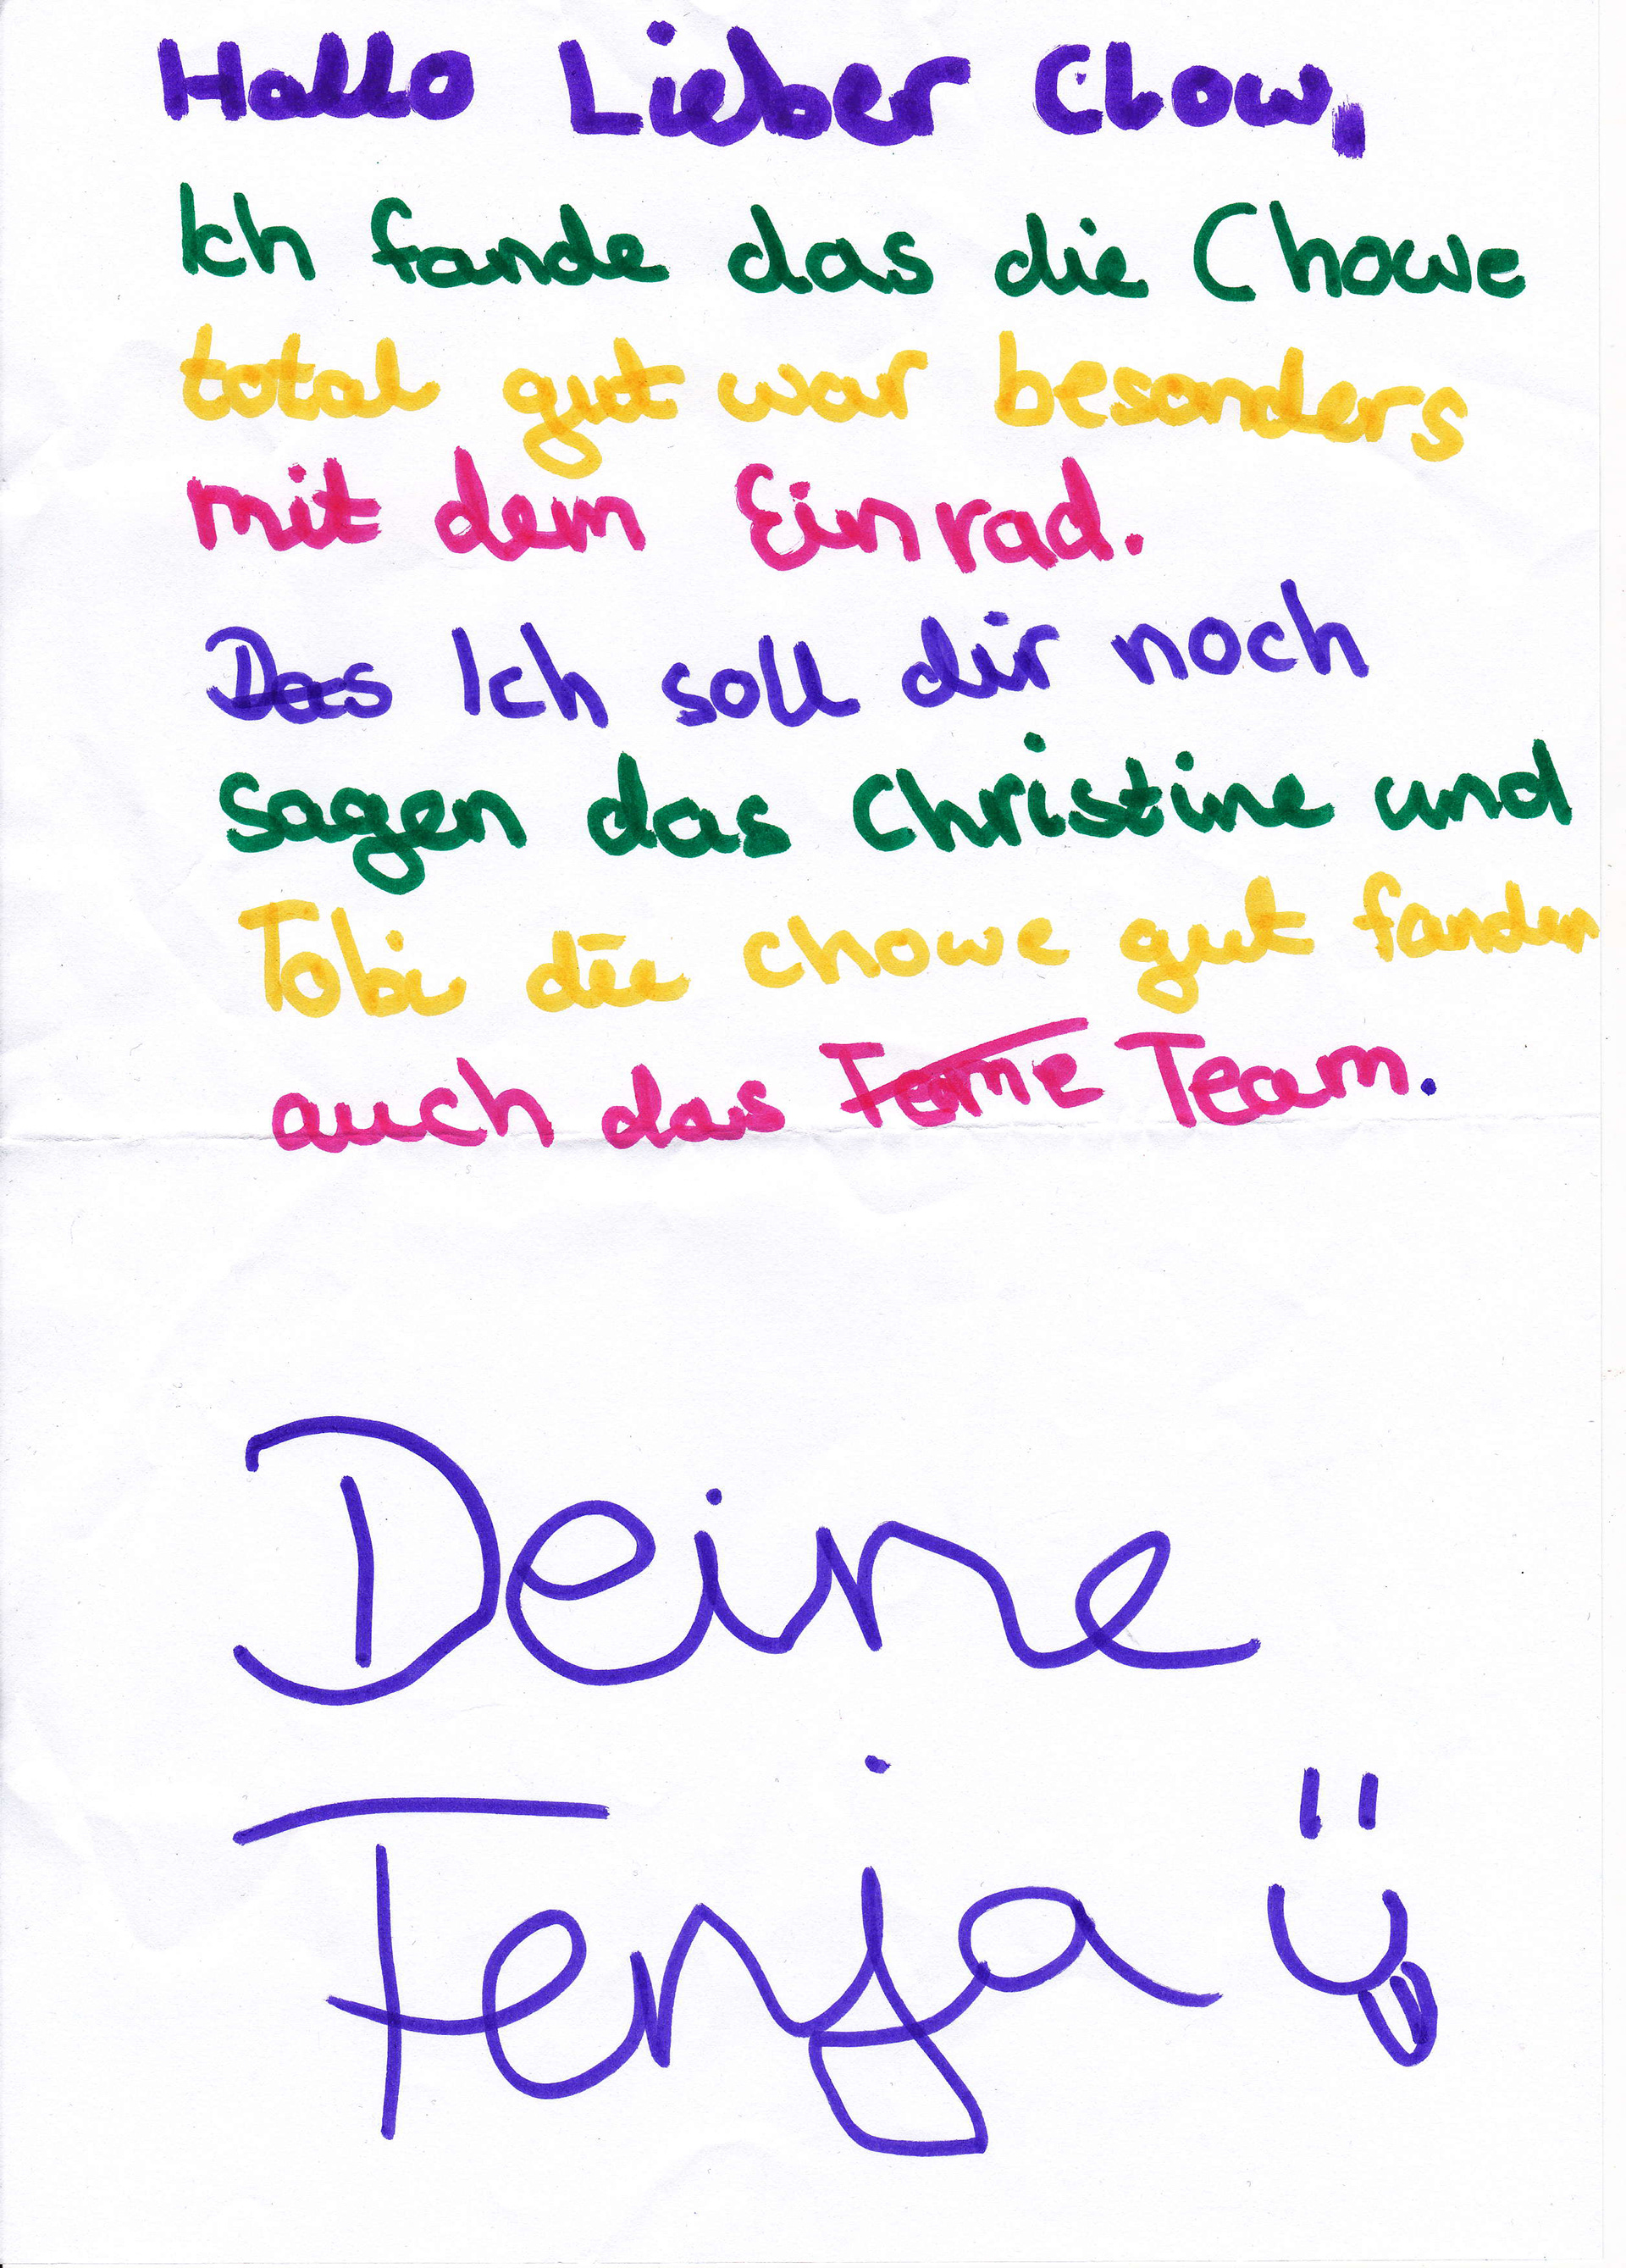 Hallo Lieber Clow,
Ich fande das die Chowe
total gut war besonders
mit dem Einrad.
Das Ich soll dir noch
sagen das Christine und
Tobi die chowe gut fanden
auch das Team.
Deine
Fenja